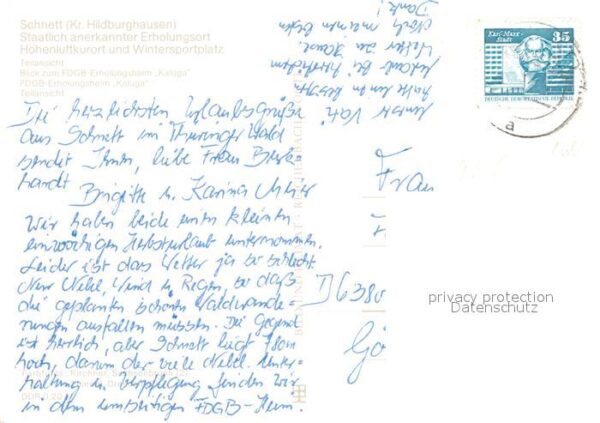 Schnett (Kr. Hildburghausen)
Staatlich anerkannter Erholungsort
Höhenluftkurort und Wintersportplatz
Teilansicht
Blick zum FDGB-Erholungsheim „Kaluga"
FDGB-Erholungsheim „Kaluga"
Teilansicht
Die herzlichsten Urlaubsgrüße
aus Schnett im Thüringer Wald
sendet Ihnen, liebe Frau Burk-
hardt
Brigitte u. Karina
Wir haben beide einen kleinen
einwöchigen Herbsturlaub unternommen.
Leider ist das Wetter ja so schlecht.
Nur Nebel, Wind u. Regen, so daß
die geplanten schönen Waldwande-
rungen ausfallen müssen. Die Gegend
ist herrlich, aber Schnett liegt 750m
hoch, darum der viele Nebel. Unter-
haltung u. Verpflegung finden wir
in dem umseitigen FDGB-Heim.
unser Vati
hatte im
Urlaub bei herrlichem
Wetter zu Hause.
Noch meinen besten
Dank!
Karl-Marx-
Stadt
35
DEUTSCHE DEMOKRATISCHE REPUBLIK
a
Frau
D 6380
Gö
privacy protection
Datenschutz